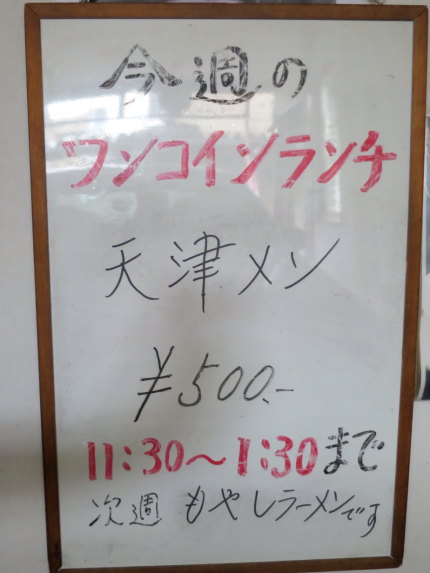 今週の
ワンコインランチ
天津メン
¥500.-
11:30〜1:30まで
次週 もやしラーメンです